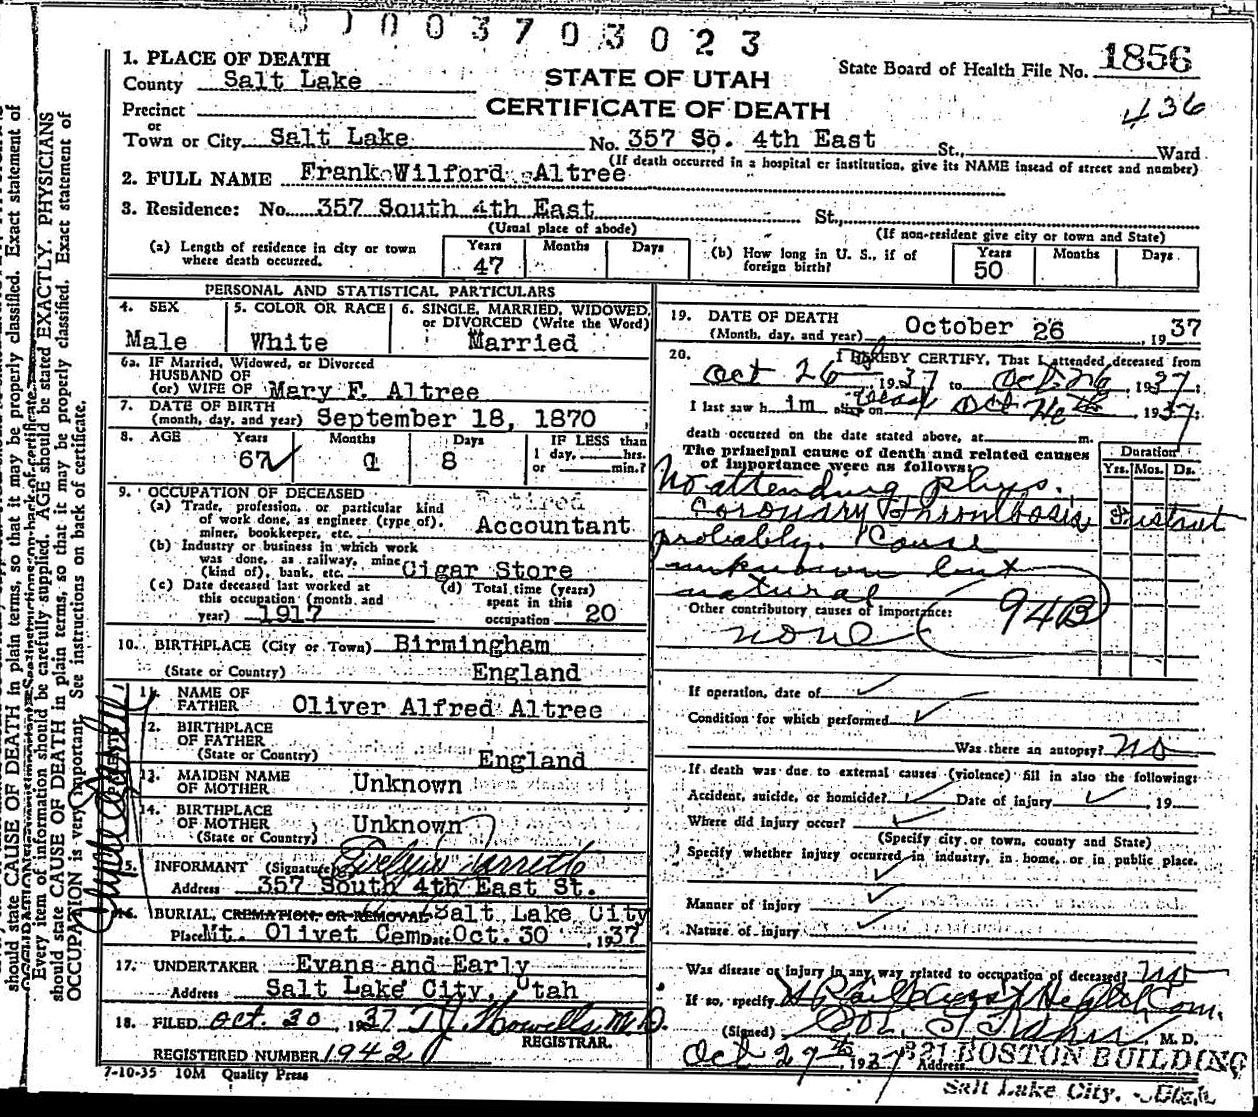 0003703023
1. PLACE OF DEATH
County Salt Lake
STATE OF UTAH
State Board of Health File No. 1856
Precinct
CERTIFICATE OF DEATH
436
or
Town or City Salt Lake No. 357 So. 4th East St., Ward
(If death occurred in a hospital or institution, give its NAME insead of street and number)
2. FULL NAME Frank Wilford Altree
3. Residence: No. 357 South 4th East St.,
(Usual place of abode) (If non-resident give city or town and State)
(a) Length of residence in city or town where death occurred. Years 47 Months Days
(b) How long in U. S., if of foreign birth? Years 50 Months Days
PERSONAL AND STATISTICAL PARTICULARS
4. SEX Male
5. COLOR OR RACE White
6. SINGLE, MARRIED, WIDOWED, or DIVORCED (Write the Word) Married
6a. IF Married, Widowed, or Divorced
HUSBAND OF
(or) WIFE OF Mary F. Altree
7. DATE OF BIRTH
(month, day, and year) September 18, 1870
8. AGE Years 67 Months 1 Days 8
IF LESS than
1 day, hrs.
or min.?
9. OCCUPATION OF DECEASED
(a) Trade, profession, or particular kind
of work done, as engineer (type of),
miner, bookkeeper, etc. Retired Accountant
(b) Industry or business in which work
was done, as railway, mine
(kind of), bank, etc. Cigar Store
(c) Date deceased last worked at
this occupation (month and
year) 1917
(d) Total time (years)
spent in this
occupation 20
10. BIRTHPLACE (City or Town) Birmingham
(State or Country) England
11. NAME OF
FATHER Oliver Alfred Altree
12. BIRTHPLACE
OF FATHER
(State or Country) England
13. MAIDEN NAME
OF MOTHER Unknown
14. BIRTHPLACE
OF MOTHER Unknown
(State or Country)
15. INFORMANT (Signature) Evelyn
Address 357 South 4th East St.
16. BURIAL, CREMATION, OR REMOVAL Salt Lake City
Place Mt. Olivet Cem Date Oct. 30, 1937
17. UNDERTAKER Evans and Early
Address Salt Lake City, Utah
18. FILED Oct. 30 1937 T J Howells M.D.
REGISTRAR.
REGISTERED NUMBER 1942
7-10-35 10M Quality Press
19. DATE OF DEATH
(Month, day, and year) October 26, 1937
20. I HEREBY CERTIFY, That I attended deceased from
Oct 26, 1937 to Oct. 26, 1937;
I last saw him alive on dead Oct 26th, 1937
death occurred on the date stated above, at m.
The principal cause of death and related causes
of importance were as follows:
Duration
Yrs. Mos. Ds.
No attending phys.
Coronary Thrombosis
probably. Cause
unknown but
natural
Other contributory causes of importance:
none
94B
If operation, date of
Condition for which performed
Was there an autopsy? no
If death was due to external causes (violence) fill in also the following:
Accident, suicide, or homicide? Date of injury 19
Where did injury occur?
(Specify city or town, county and State)
Specify whether injury occurred in industry, in home, or in public place.
Manner of injury
Nature of injury
Was disease or injury in any way related to occupation of deceased? no
If so, specify Health Com.
(Signed) M. D.
Oct 27th, 1937 Address 321 BOSTON BUILDING
Salt Lake City, Utah
should state CAUSE OF DEATH in plain terms, so that it may be properly classified. Exact statement of
Every item of information should be carefully supplied. AGE should be stated EXACTLY. PHYSICIANS
should state CAUSE OF DEATH in plain terms, so that it may be properly classified. Exact statement of
OCCUPATION is very important. See instructions on back of certificate.